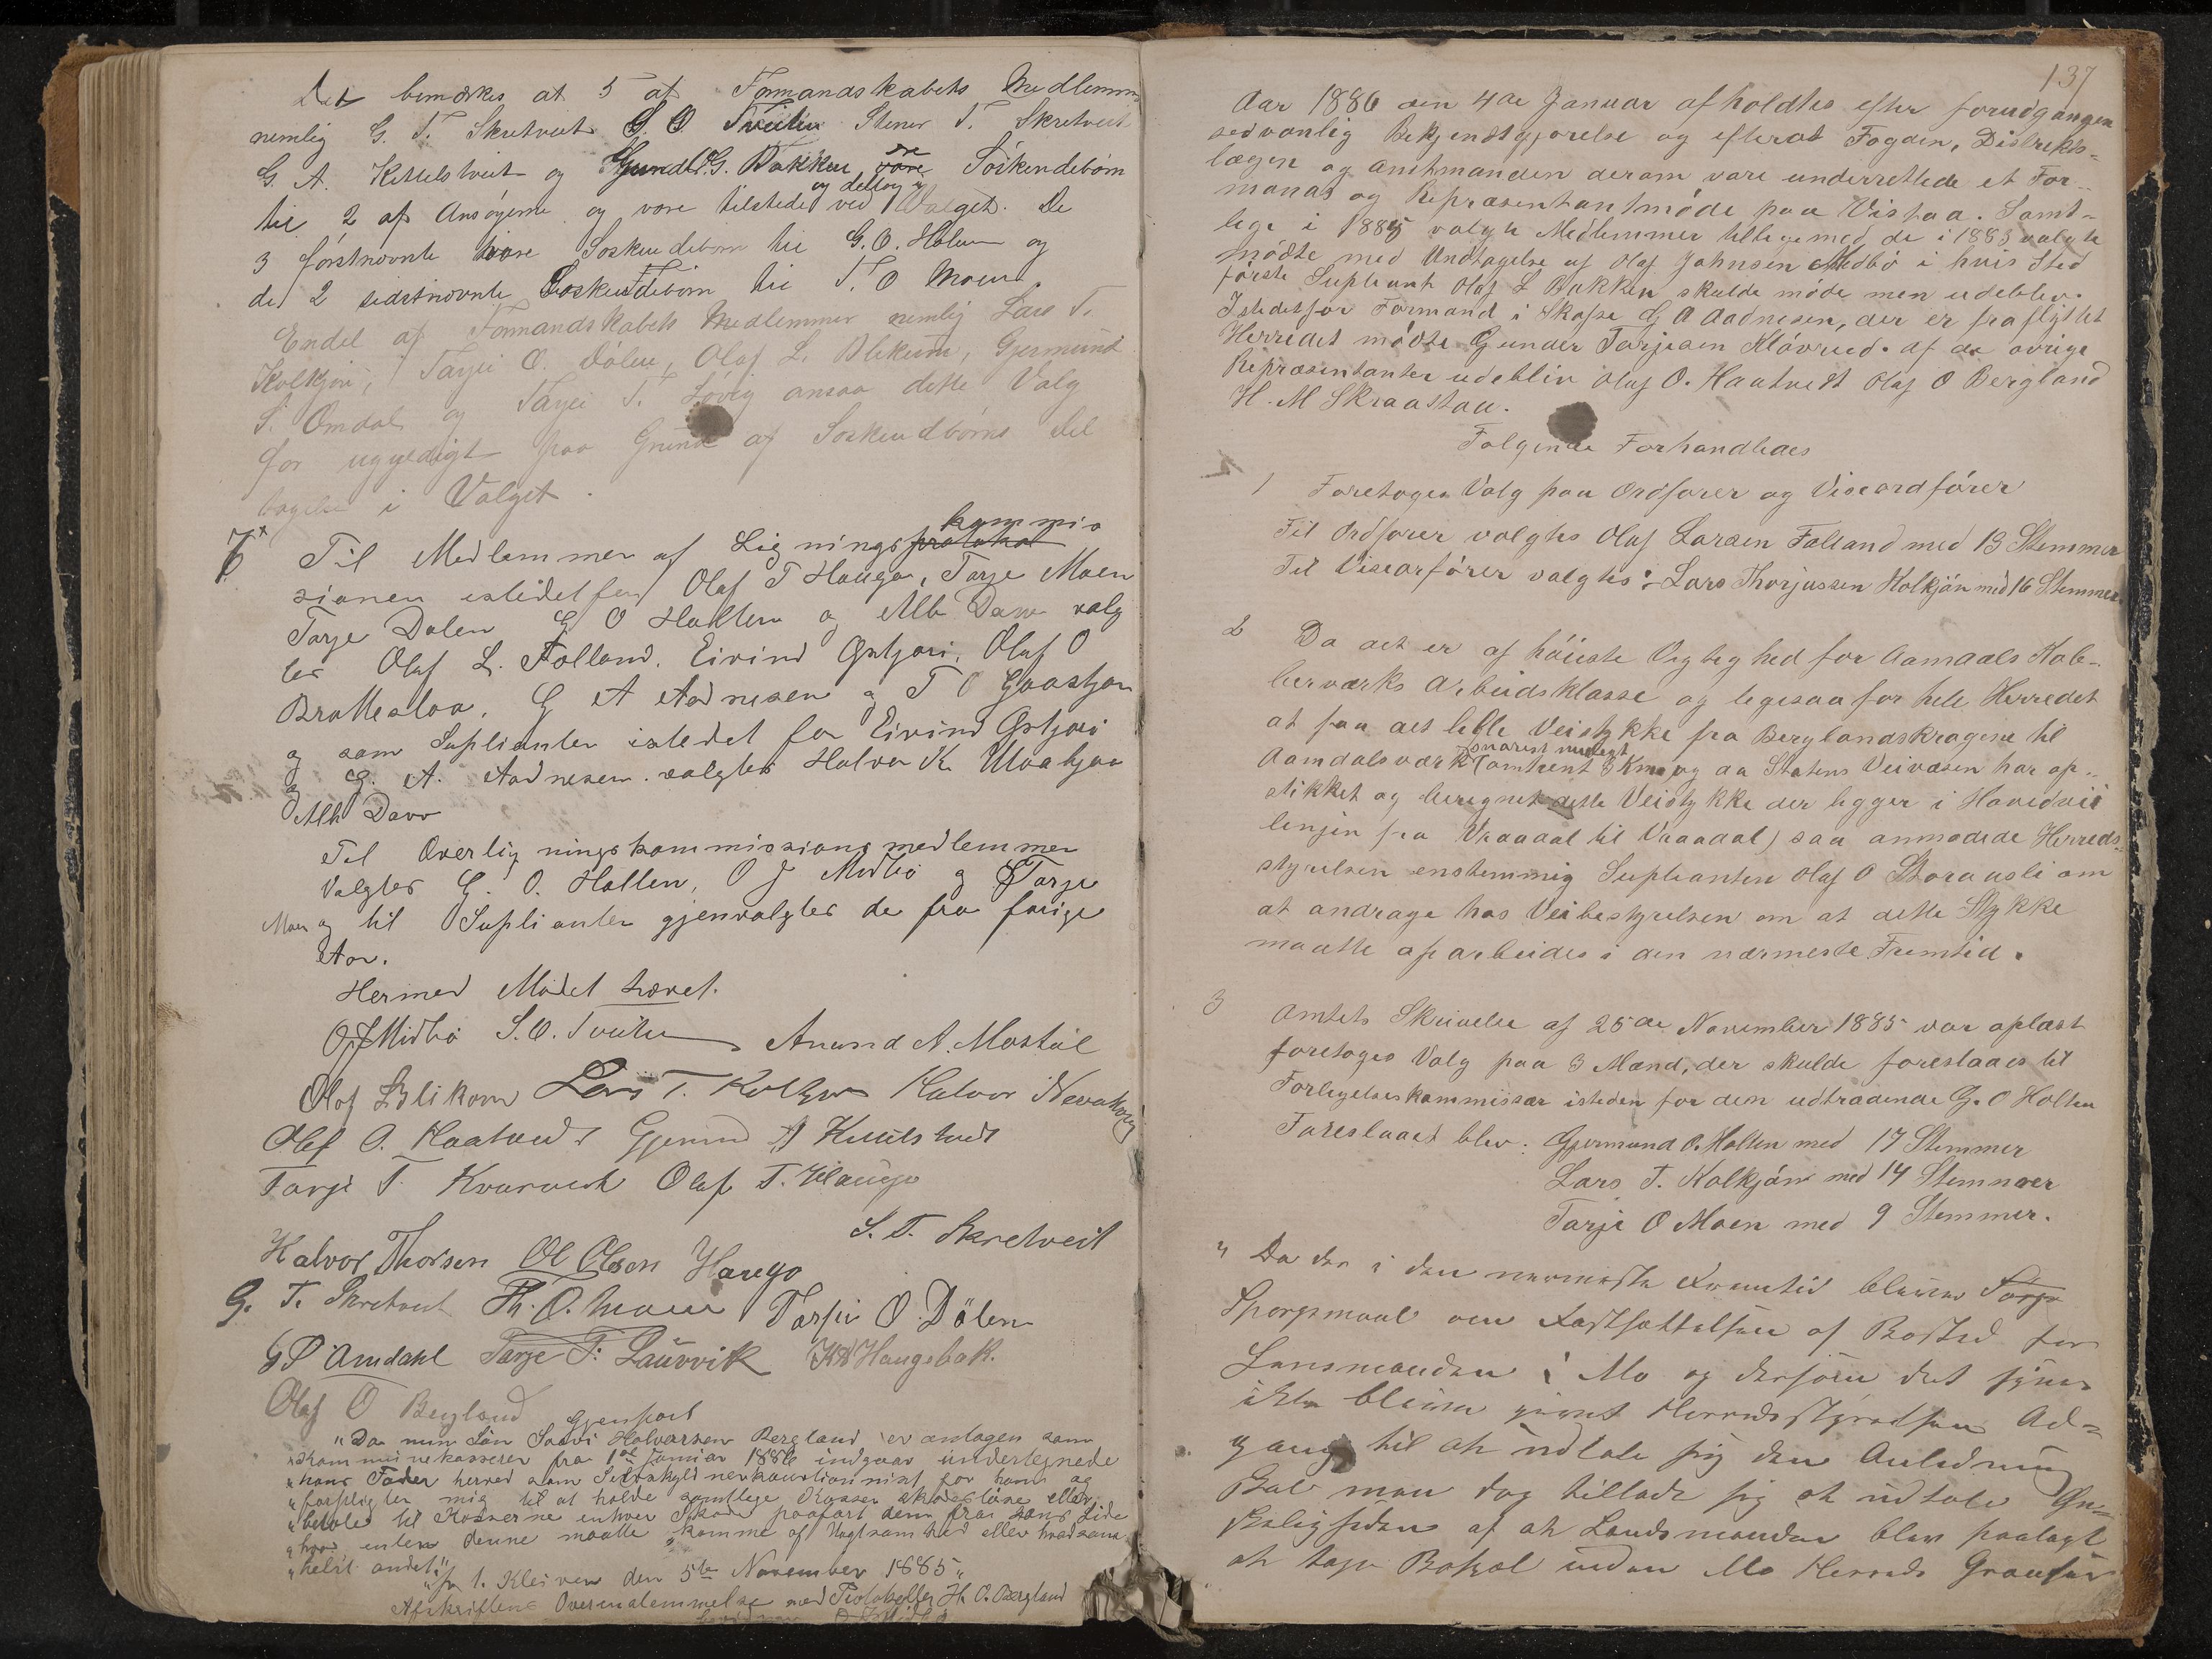 Det bemærkes at 5 af Formandskabets Medlemm
nemlig G. T. Skretveit S. O. Tveiten Stener T. Skretveit
G. A. Kittelstveit og Gjermund G. Bakken vare ere Söskendebörn
til 2 af Ansögerne og vare tilstede og deltog i ved Valget. De
3 förstnævnte vare Söskendebörn til G. O. Holten og
de 2 sidstnævnte Söskendebörn til T. O Moen.
Endel af Formandskabets Medlemmer nemlig Lars T.
Kolkjön, Tarjei O. Dölen, Olaf L. Blikom, Gjermund
S. Omdal og Tarjei T. Lövig ansaa dette Valg
for ugyldigt paa Grund af Söskendbörns Del
tagelse i Valget.
7 Til Medlemmer af Lignings protokol kommis
sionen istedetfor Olaf T Hauge, Tarje Moen
Tarje Dalen G O Holten og Alb Davv valg
tes Olaf L. Folland, Eivind Grtjøri, Olaf O
Brattestaa, G A Aadnesen og T O Gaastjon
og som Suplianter istedet for Eivind Grtjøri
og G. A. Aadnesen valgtes Halvor K. Moakjon
og Alb Davv
Til Overligningskommissionsmedlemmer
Valgtes G. O. Holten, O J Midbö og Tarje
Moen og til Suplianter gjenvalgtes de fra forige
Aar.
Hermed Mödet hævet.
O J Midbö S. O. Tveiten Anund A. Mostöl
Olaf L Blikom Lars T. Kolkjön Halvor Nevakaas
Olef O. Haatvedt Gjermund A Kittelstvedt
Tarje T. Kvarveit Olaf T. Hauge
S. T. Skretveit
Halvor Thorsen Ol Olsen Hauge
G. T. Skretveit Th. O. Moen Tarjei O. Dölen
G S Amdahl Tarje T. Lauvvik K K Haugebak.
Olaf O Bergland
Gjenpart
"Da min Sön Saavi Halvorsen Bergland er antagen som
"Kommunekasserer fra 1ste Januar 1886 indgaar undertegnede
"hans Fader herved som Selvskyldnerkautionist for ham og
"forpligter mig til at holde samtlige Kasser skadeslöse eller
"betale til Kasserne enhver Skade paafört dem fra hans Side
"hvad enten denne maatte komme af Uagtsomhed eller hvadsom
"helst andet."
"p. t. Kleiven den 5te November 1885"
Afskriftens Overensstemmelse med Protokollen H. O. Bergland
bevidner O J Midbö
137
Aar 1886 den 4de Januar afholdtes efter forudgangen
sedvanlig Bekjendtgjörelse og efterat Fogden, Distrikts-
lægen og Amtmanden derom vare underrettede et For-
mands og Repræsentantmöde paa Vistad. Samt-
lige i 1885 valgte Medlemmer tilligemed de i 1883 valgte
mödte med Undtagelse af Olaf Johnsen Midbö i hvis Sted
förste Supleant Olaf L Bakken skulde möde men udeblev.
Istedetfor Formand i Skafse G A Aadnesen, der er fraflyttet
Herredet mödte Gunder Tarjesen Klövrud. af de övrige
Repræsentanter udeblev Olaf O. Haatvedt Olaf O Bergland
H. M Skraastad.
Fölgende Forhandledes
1 Foretoges Valg paa Ordförer og Viseordförer
Til Ordförer valgtes Olaf Larsen Folland med 13 Stemmer
Til Viseorförer valgtes: Lars Thorjussen Kolkjön med 16 Stemmer.
2 Da det er af höieste Vigtighed for Aamdals Kob-
berværks Arbeidsklasse og ligesaa for hele Herredet
at faa det lille Veistykke fra Berglandskragene til
Aamdalsværk snarest muligt (omtrent 3 Km og da Statens Veivæsen har op-
stikket og beregnet dette Veistykke der ligger i Hovedvei
linjen fra Vraadal til Vraadal) saa anmodede Herreds-
styrelsen enstemmig Suplianten Olaf O Storaasli om
at andrage hos Veibestyrelsen om at dette Stykke
maatte oparbeides i den nærmeste Fremtid.
3 Amtets Skrivelse af 25de November 1885 var oplæst
foretoges Valg paa 3 Mænd, der skulde foreslaaes til
Forligelseskommissær isteden for den udtrædende G. O Holten
Foreslaaet blev: Gjermund O. Holten med 17 Stemmer
Lars T. Kolkjön med 14 Stemmer
Tarje O Moen med 9 Stemmer.
4 Da der i den nærmeste Fremtid bliver Sörge
Spørgsmaal om Fastsættelsen af Bosted for
Lensmanden i Mo og dersom det synes
ikke bliver givet Herredsstyrelsen Ad-
gang til at udtale sig i den Anledning
skal man dog tillade sig at udtale Øn-
skeligheden af at Lensmanden blev paalagt
at tage Bopæl inden Mo Herreds Grændser